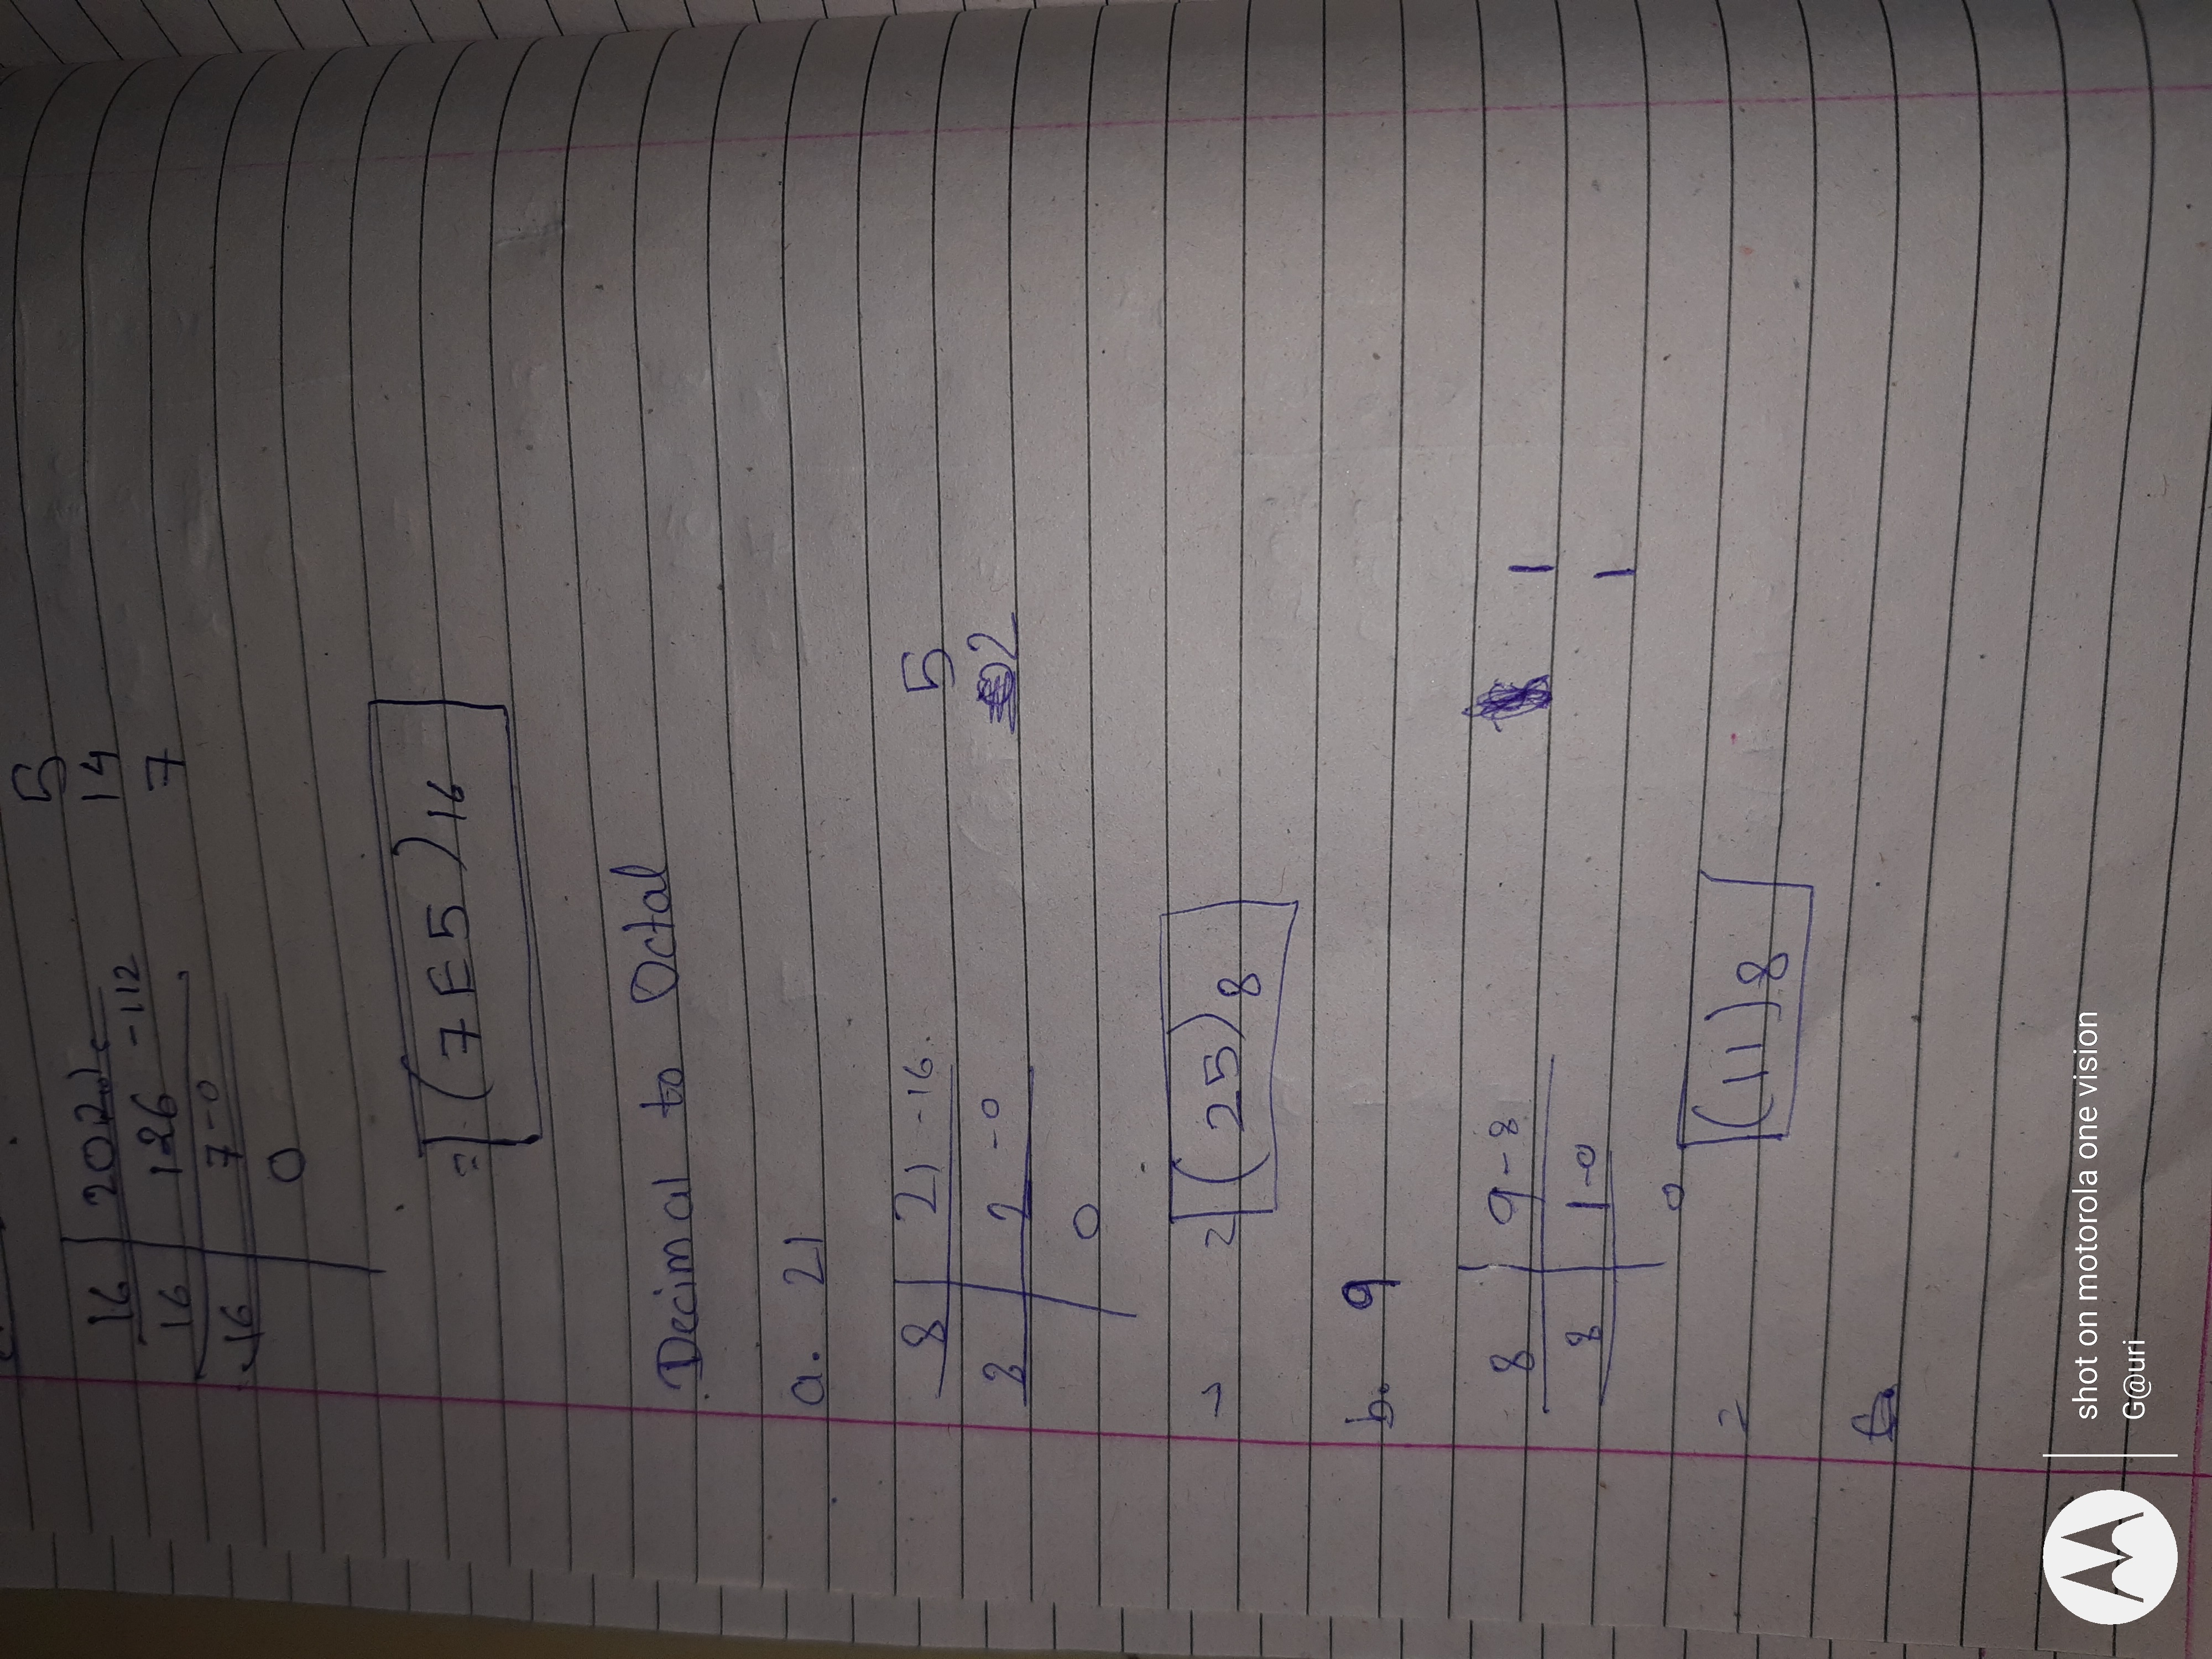 5
16 14
16 126 -112 7
16 7-0
0
= (7E5)16
Decimal to Octal
a. 21
8 21 -16 5
8 2 -0 2
0
= (25)8
b. 9
8 9-8 1
8 1-0 1
0
= (11)8
shot on motorola one vision
G@uri